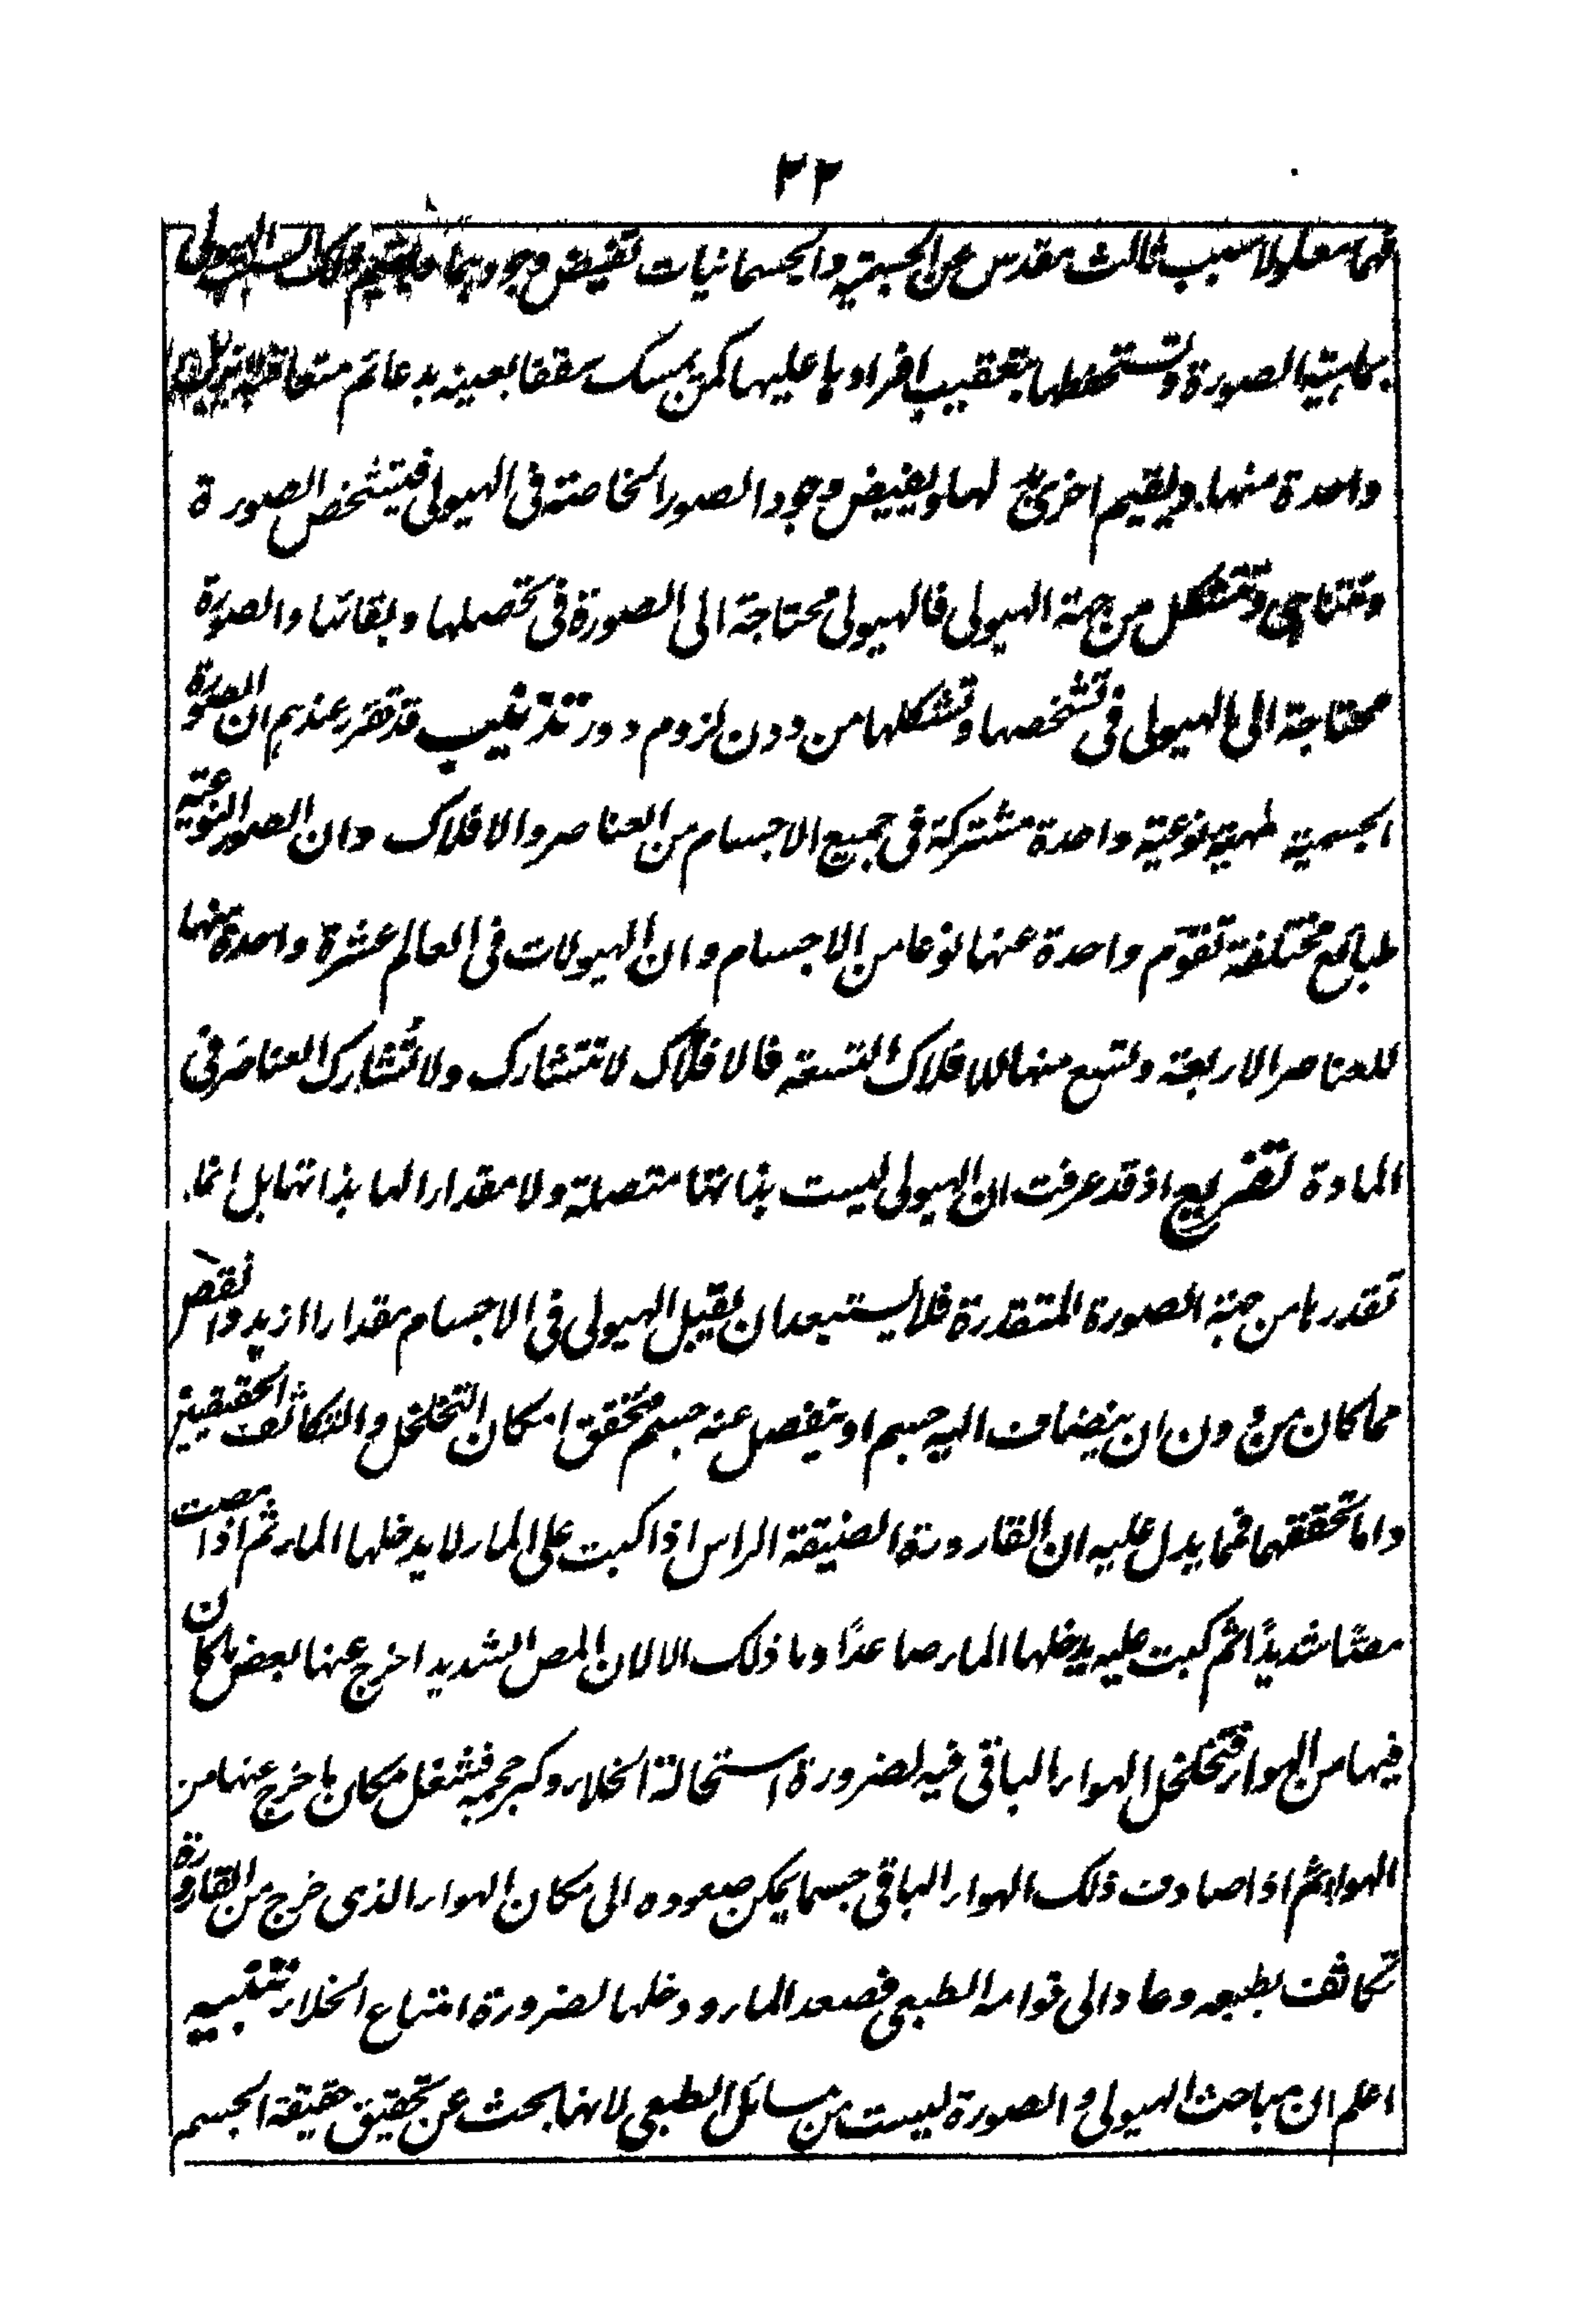 ٢٢
فهما معلولا سبب ثالث مقدس عن الجسمية والجسمانيات تفيض وجودهما الهيولى
بماهية الصورة وتستحفظها بتعقيب افرادها عليها كمن يمسك سقفا بعينه بدعائم متعاقبة يزيل
واحدة منها ويقيم اخرى لها ويفيض وجود الصور الخاصة فى الهيولى فتتشخص الصورة
وتتناهى وتتشكل من جهة الهيولى فالهيولى محتاجة الى الصورة فى تحصلها وبقائها والصورة
محتاجة الى الهيولى فى تشخصها وتشكلها من دون لزوم دور تذنيب قد تقرر عندهم ان الصورة
الجسمية طبيعة نوعية واحدة مشتركة فى جميع الاجسام من العناصر والافلاك وان الصور النوعية
طبائع مختلفة تقوّم واحدة منها نوعا من الاجسام وان الهيولات فى العالم عشرة واحدة منها
للعناصر الاربعة وتسع منها للافلاك التسعة فالافلاك لا تتشارك ولا تُشارك العناصر فى
المادة تفريع اذ قد عرفت ان الهيولى ليست بذاتها متصلة ولا مقدارا لها بذاتها بل انما
تقدرها من جهة الصورة المتقدرة فلا يستبعد ان يقبل الهيولى فى الاجسام مقدارا ازيد وانقص
مما كان من دون ان ينضاف اليه جسم او ينفصل عنه جسم فتحقق امكان التخلخل والتكاثف الحقيقيين
واما تحققهما فمما يدل عليه ان القارورة الضيقة الراس اذا كبت على الماء لا يدخلها الماء ثم اذا مصت
مصًا شديدًا ثم كبت عليه يدخلها الماء صاعدًا وما ذلك الا لان المص الشديد اخرج عنها بعض ما كان
فيها من الهواء فتخلخل الهواء الباقى فيه لضرورة استحالة الخلاء وكبر حجمه فشغل مكان ما خرج عنها من
الهواء ثم اذا صادف ذلك الهواء الباقى جسما يمكن صعوده الى مكان الهواء الذى خرج من القارورة
تكاثف بطبعه وعاد الى قوامه الطبعى فصعد الماء ودخلها لضرورة امتناع الخلاء تنبيه
اعلم ان مباحث الهيولى والصورة ليست من مسائل الطبعى لانها بحث عن تحقيق حقيقة الجسم